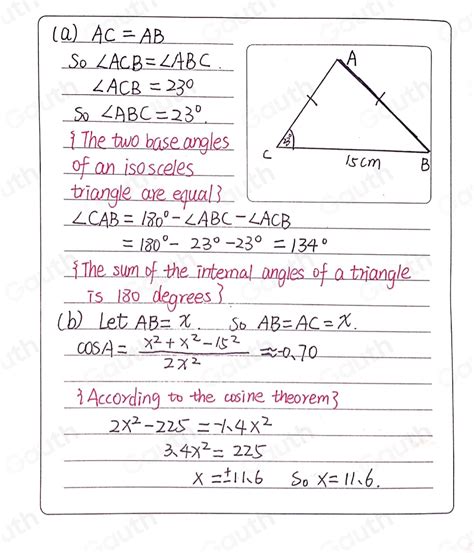 (a) AC = AB
So ∠ACB = ∠ABC.
∠ACB = 23°
So ∠ABC = 23°.
{The two base angles
of an isosceles
triangle are equal}
A
C
15cm
B
∠CAB = 180° - ∠ABC - ∠ACB
= 180° - 23° - 23° = 134°
{The sum of the internal angles of a triangle
is 180 degrees}
(b) Let AB = x. So AB = AC = x.
cosA = (x² + x² - 15²)/(2x²) ≈ -0.70
{According to the cosine theorem}
2x² - 225 = -1.4x²
3.4x² = 225
x = ±11.6 So x = 11.6.
Gauth